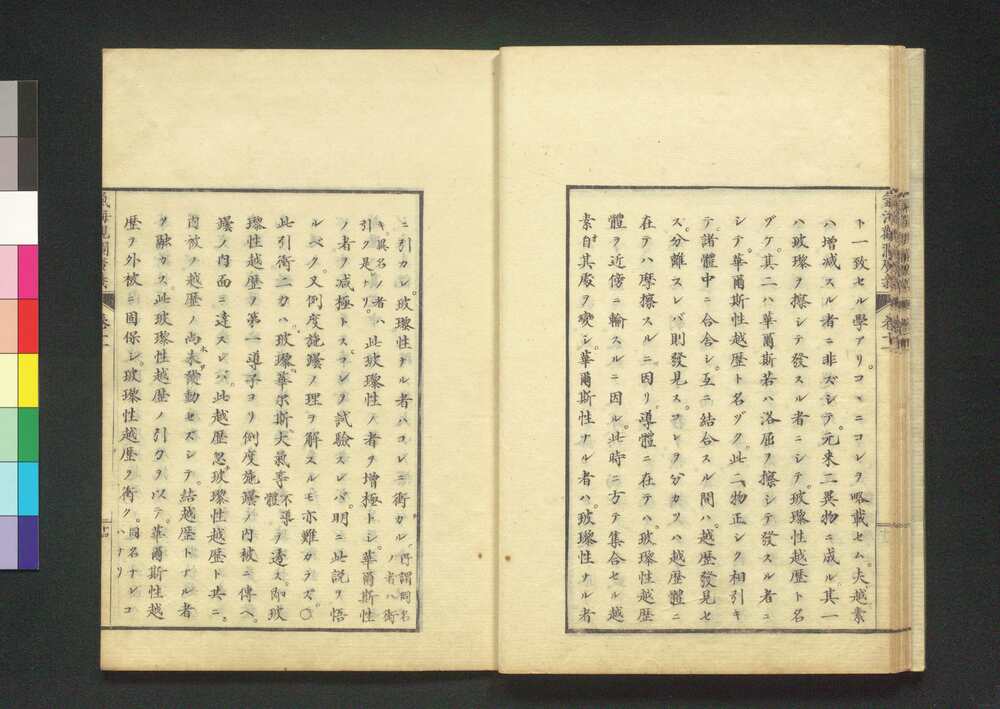 ト一致セル學アリコヽニコレヲ略載セム。夫越素
ハ増減スル者ニ非ズシテ。元来二異物ニ成ル其一
ハ玻瓈ヲ擦シテ發スル者ニシテ。玻瓈性越歴ト名
ヅケ。其二ハ華爾斯若ハ洛屈ヲ擦シテ發スル者ニ
シテ。華爾斯性越歴ト名ヅク。此二物正シク相引キ
テ。諸體中ニ合舎シ。互ニ結合スル間ハ。越歴發見セ
ズ。分離スレバ則發見ス。コレヲ分カツハ越歴體ニ
在テハ摩擦スルニ因リ。導體ニ在テハ。玻瓈性越歴
體ヲ近傍ニ輸スルニ因ル。此時ニ方テ集合セル越
素自其處ヲ變シ。華爾斯性ナル者ハ。玻瓈性ナル者
ニ引カレ。玻瓈性ナル者ハコレニ衝カル。所謂同名ノ者ハ衝
キ。異名ノ者ハ引ク是ナリ。此玻瓈性ノ者ヲ増極トシ。華爾斯性
ノ者ヲ減極トス。コレヲ試驗スレバ。明ニ此説ヲ悟
ルベク。又倒度施蠳ノ理ヲ解スルモ亦難カラズ。〇
此引衝二力ハ。玻瓈華尓斯大氣等不導體ヲ透ス。即玻
瓈性越歴ノ第一導子ヨリ倒度施蠳ノ内被ニ傳ヘ。
蠳ノ内面ニ達スレバ。此越歴忽玻瓈性越歴ト共ニ。
内被ノ越歴ノ尚未動セズシテ。結越歴トナル者
ヲ融カス。此玻瓈性越歴ノ引力ヲ以テ。華爾斯性越
歴ヲ外被ニ固保シ。玻瓈性越歴ヲ衝ク。同名ナレバナリ コ